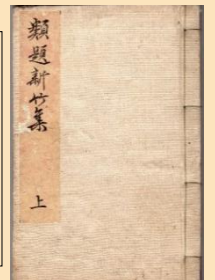 類題新竹集
上